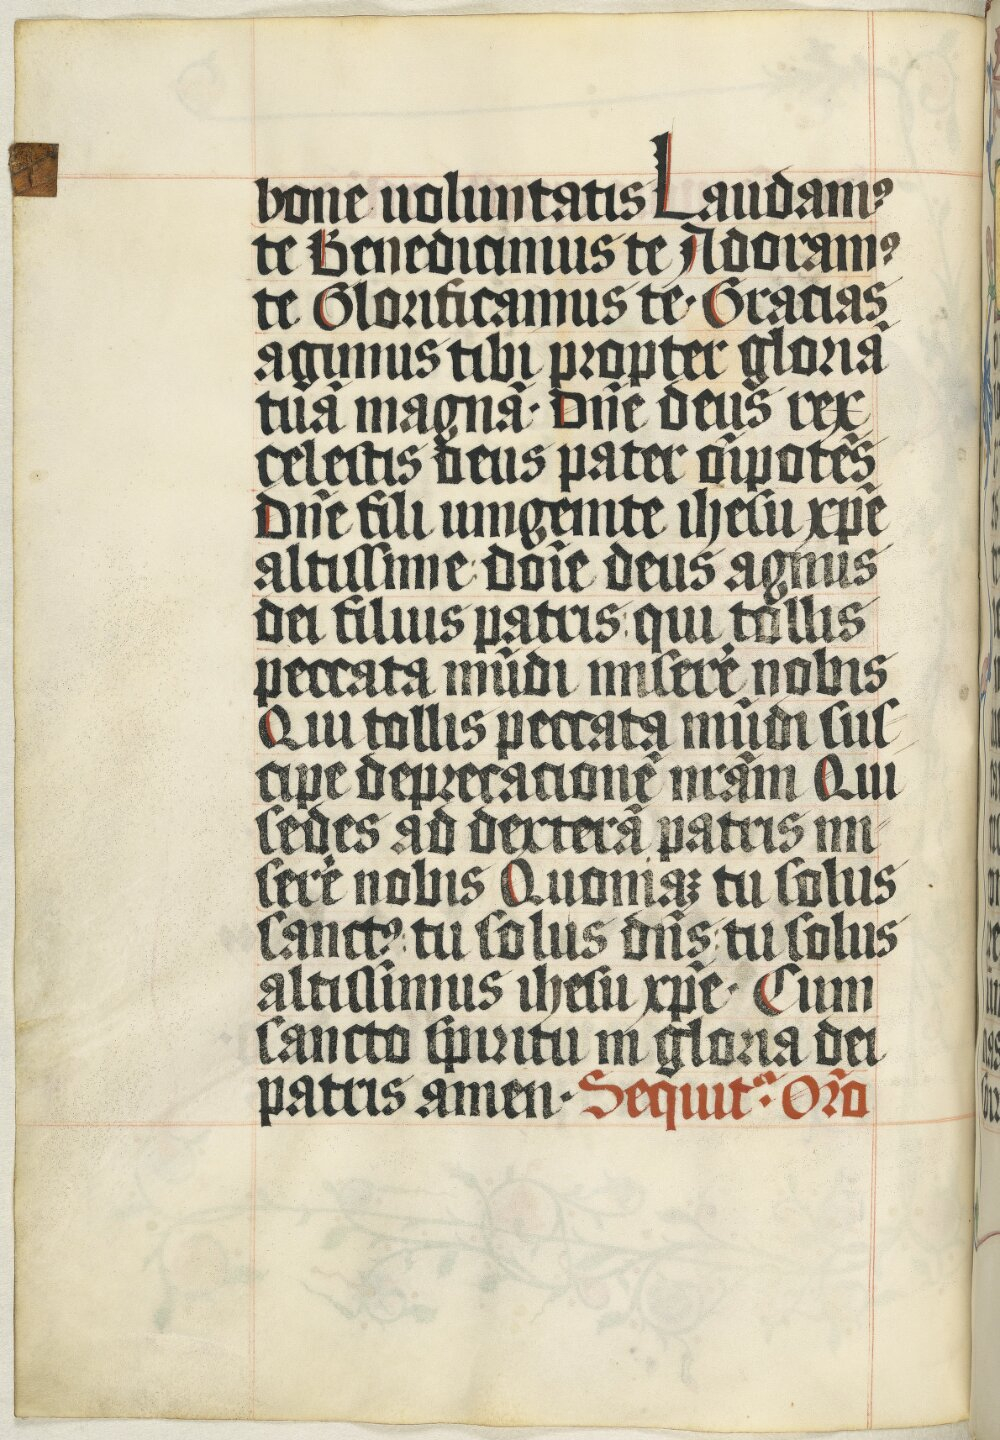 bone uoluntatis Laudamꝰ
te Benedicimus te Adoramꝰ
te Glorificamus te· Gracias
agimus tibi propter gloriā
tuā magnā· Dn̄e deus rex
celestis deus pater om̄ipotēs
Dn̄e fili unigenite ihesu xp̄e
altissime: doīe deus agnus
dei filius patris: qui tollis
peccata mūdi miserē nobis
Qui tollis peccata mūdi sus
cipe deprecacionē nr̄am Qui
sedes ad dexterā patris mi
serē nobis Quoniaꝫ tu solus
sanctꝰ: tu solus dn̄s: tu solus
altissimus ihesu xp̄e· Cum
sancto spiritu in gloria dei
patris amen· Sequit᷑: Or̄o